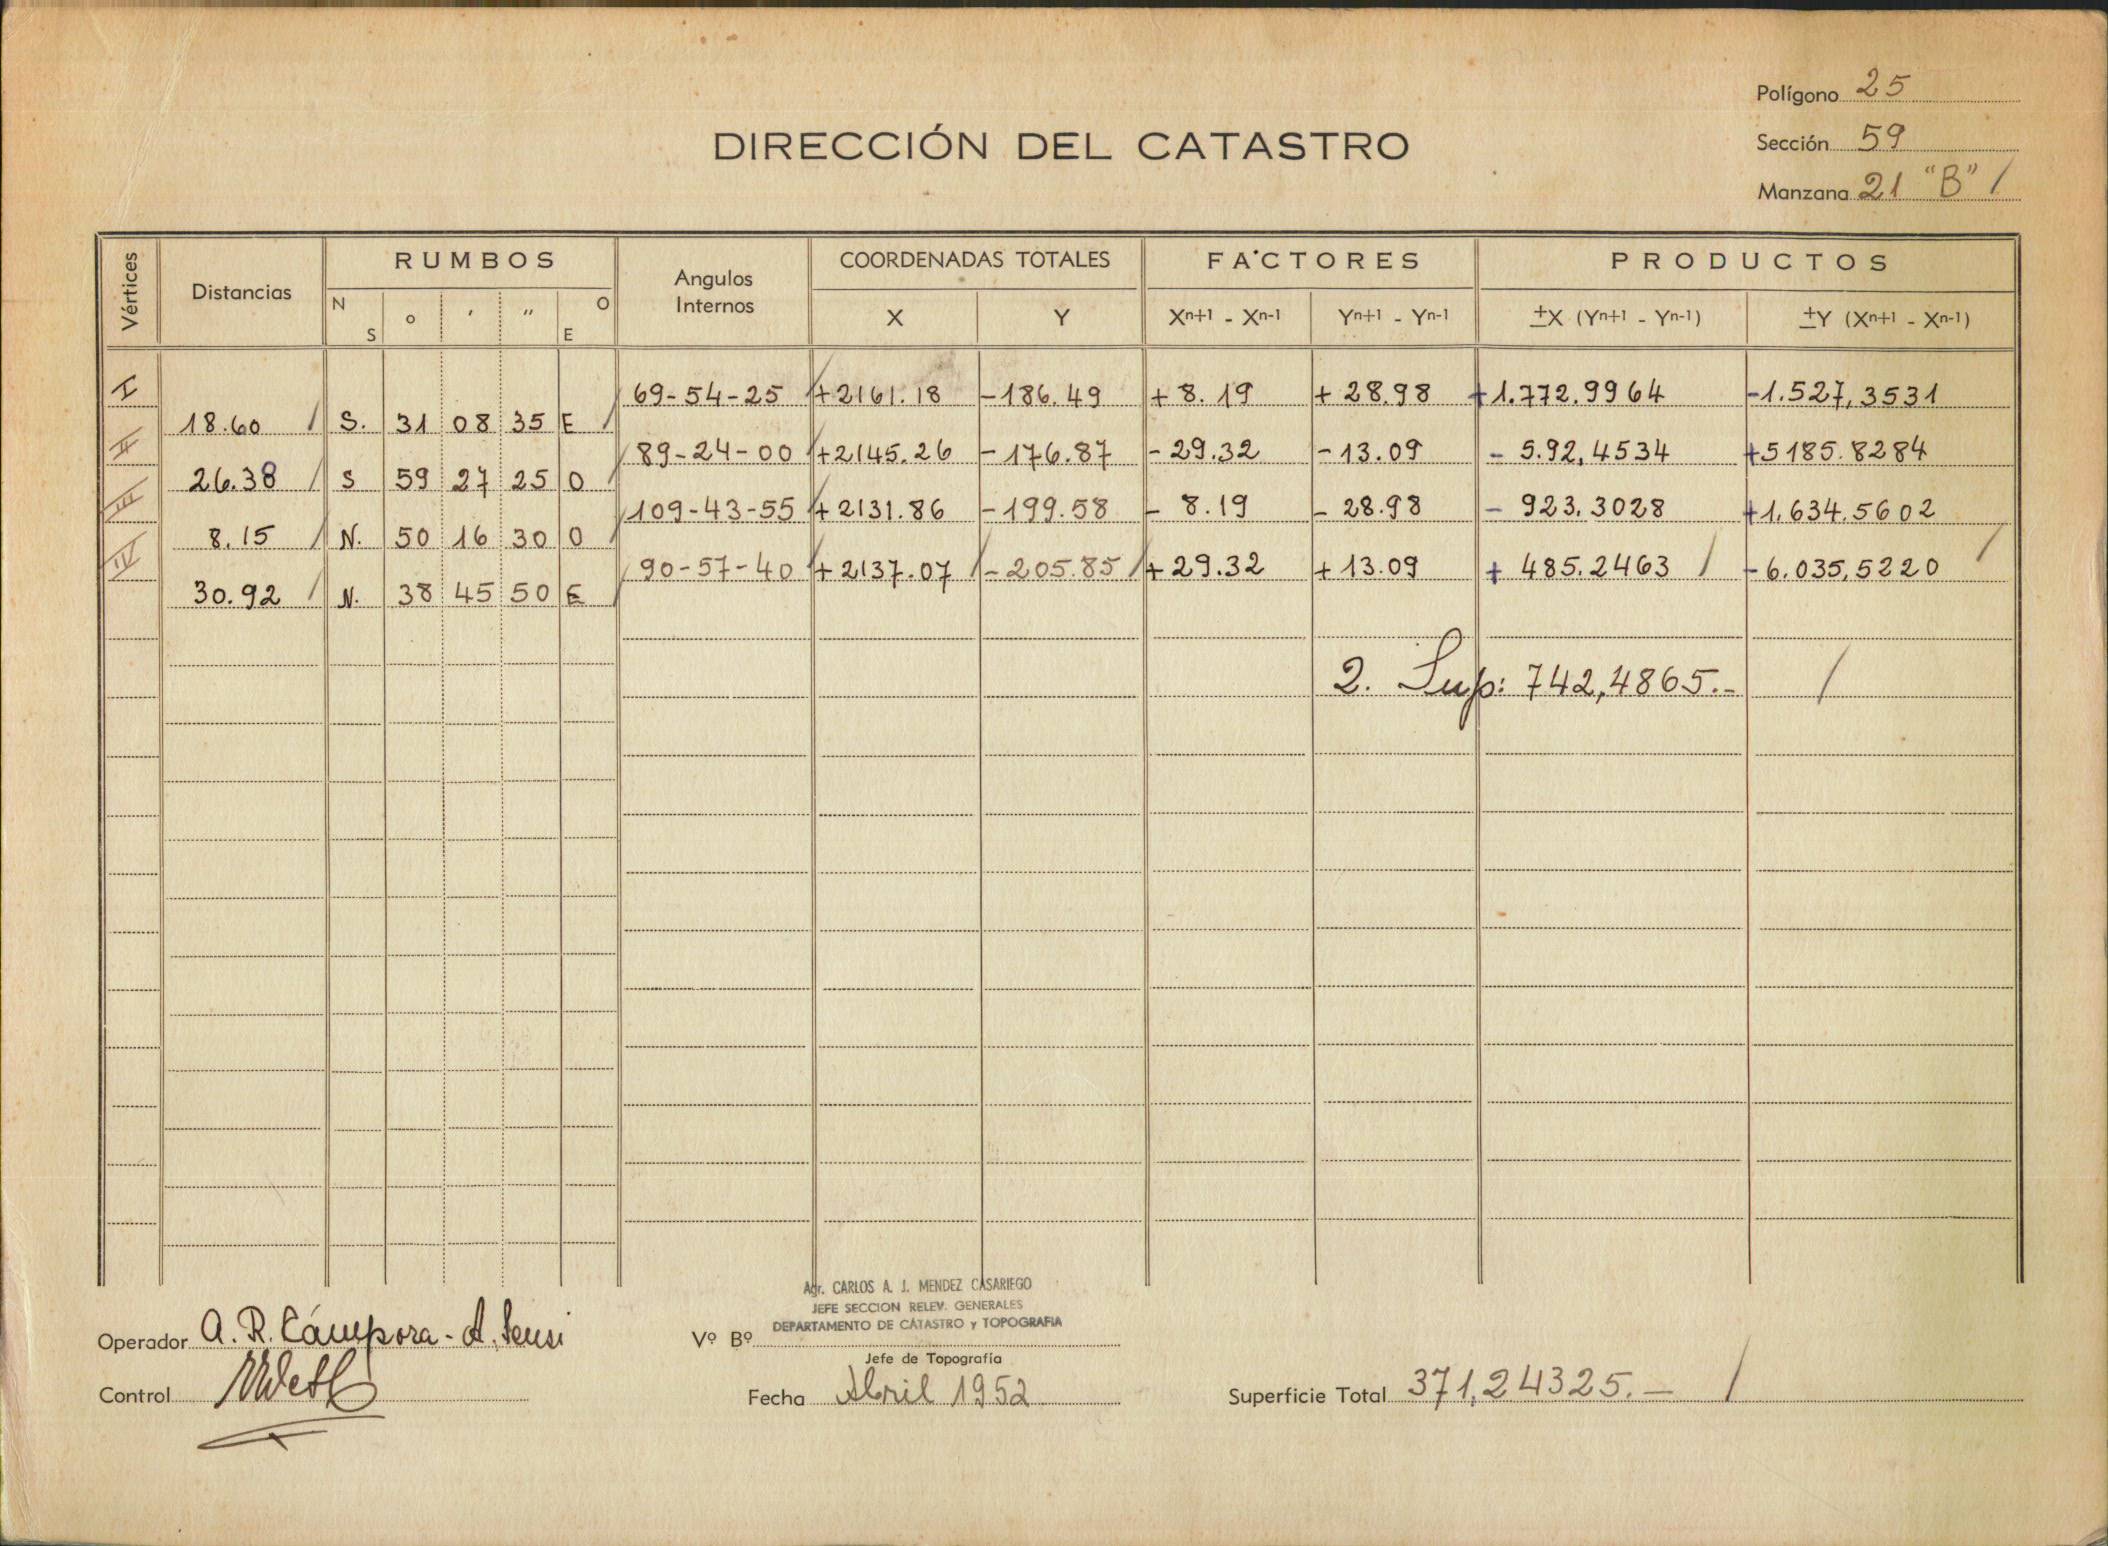 Polígono 25
DIRECCIÓN DEL CATASTRO
Sección 59
Manzana 21 "B" /
Vértices Distancias RUMBOS Angulos Internos COORDENADAS TOTALES FACTORES PRODUCTOS
N S ° ' " O E X Y Xn+1 - Xn-1 Yn+1 - Yn-1 ±X (Yn+1 - Yn-1) ±Y (Xn+1 - Xn-1)
I 69-54-25 +2161.18 -186.49 +8.19 +28.98 +1.772.9964 -1.527,3531
18.60 S. 31 08 35 E
II 89-24-00 +2145.26 -176.87 -29.32 -13.09 - 5.92,4534 +5185.8284
26.38 S 59 27 25 O
III 109-43-55 +2131.86 -199.58 - 8.19 - 28.98 - 923,3028 +1.634.5602
8.15 N. 50 16 30 O
IV 90-57-40 +2137.07 -205.85 +29.32 +13.09 + 485.2463 -6.035,5220
30.92 N. 38 45 50 E
2. Sup: 742,4865.-
Agr. CARLOS A. J. MENDEZ CASARIEGO
JEFE SECCION RELEV. GENERALES
DEPARTAMENTO DE CATASTRO y TOPOGRAFIA
Operador A. R. Cámpora - A. Sensi
Vº Bº
Jefe de Topografía
Control
Fecha Abril 1952
Superficie Total 371,24325.-